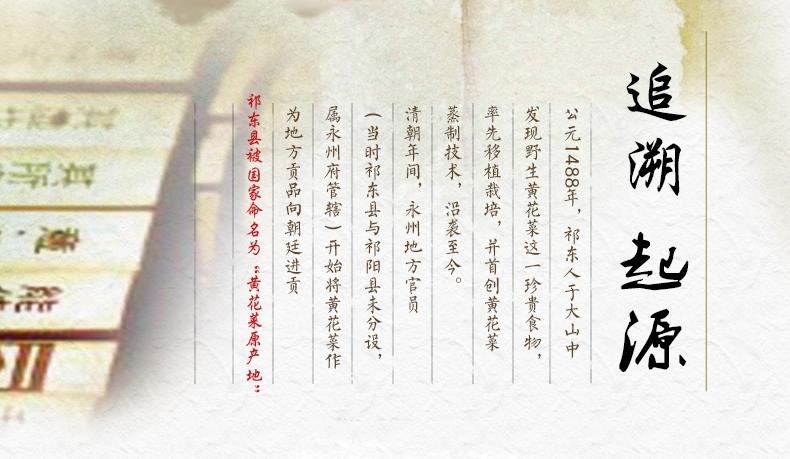 追溯 起源
公元1488年，祁东人于大山中
发现野生黄花菜这一珍贵食物，
率先移植栽培，并首创黄花菜
蒸制技术，沿袭至今。
清朝年间，永州地方官员
（当时祁东县与祁阳县未分设，
属永州府管辖）开始将黄花菜作
为地方贡品向朝廷进贡
祁东县被国家命名为“黄花菜原产地”